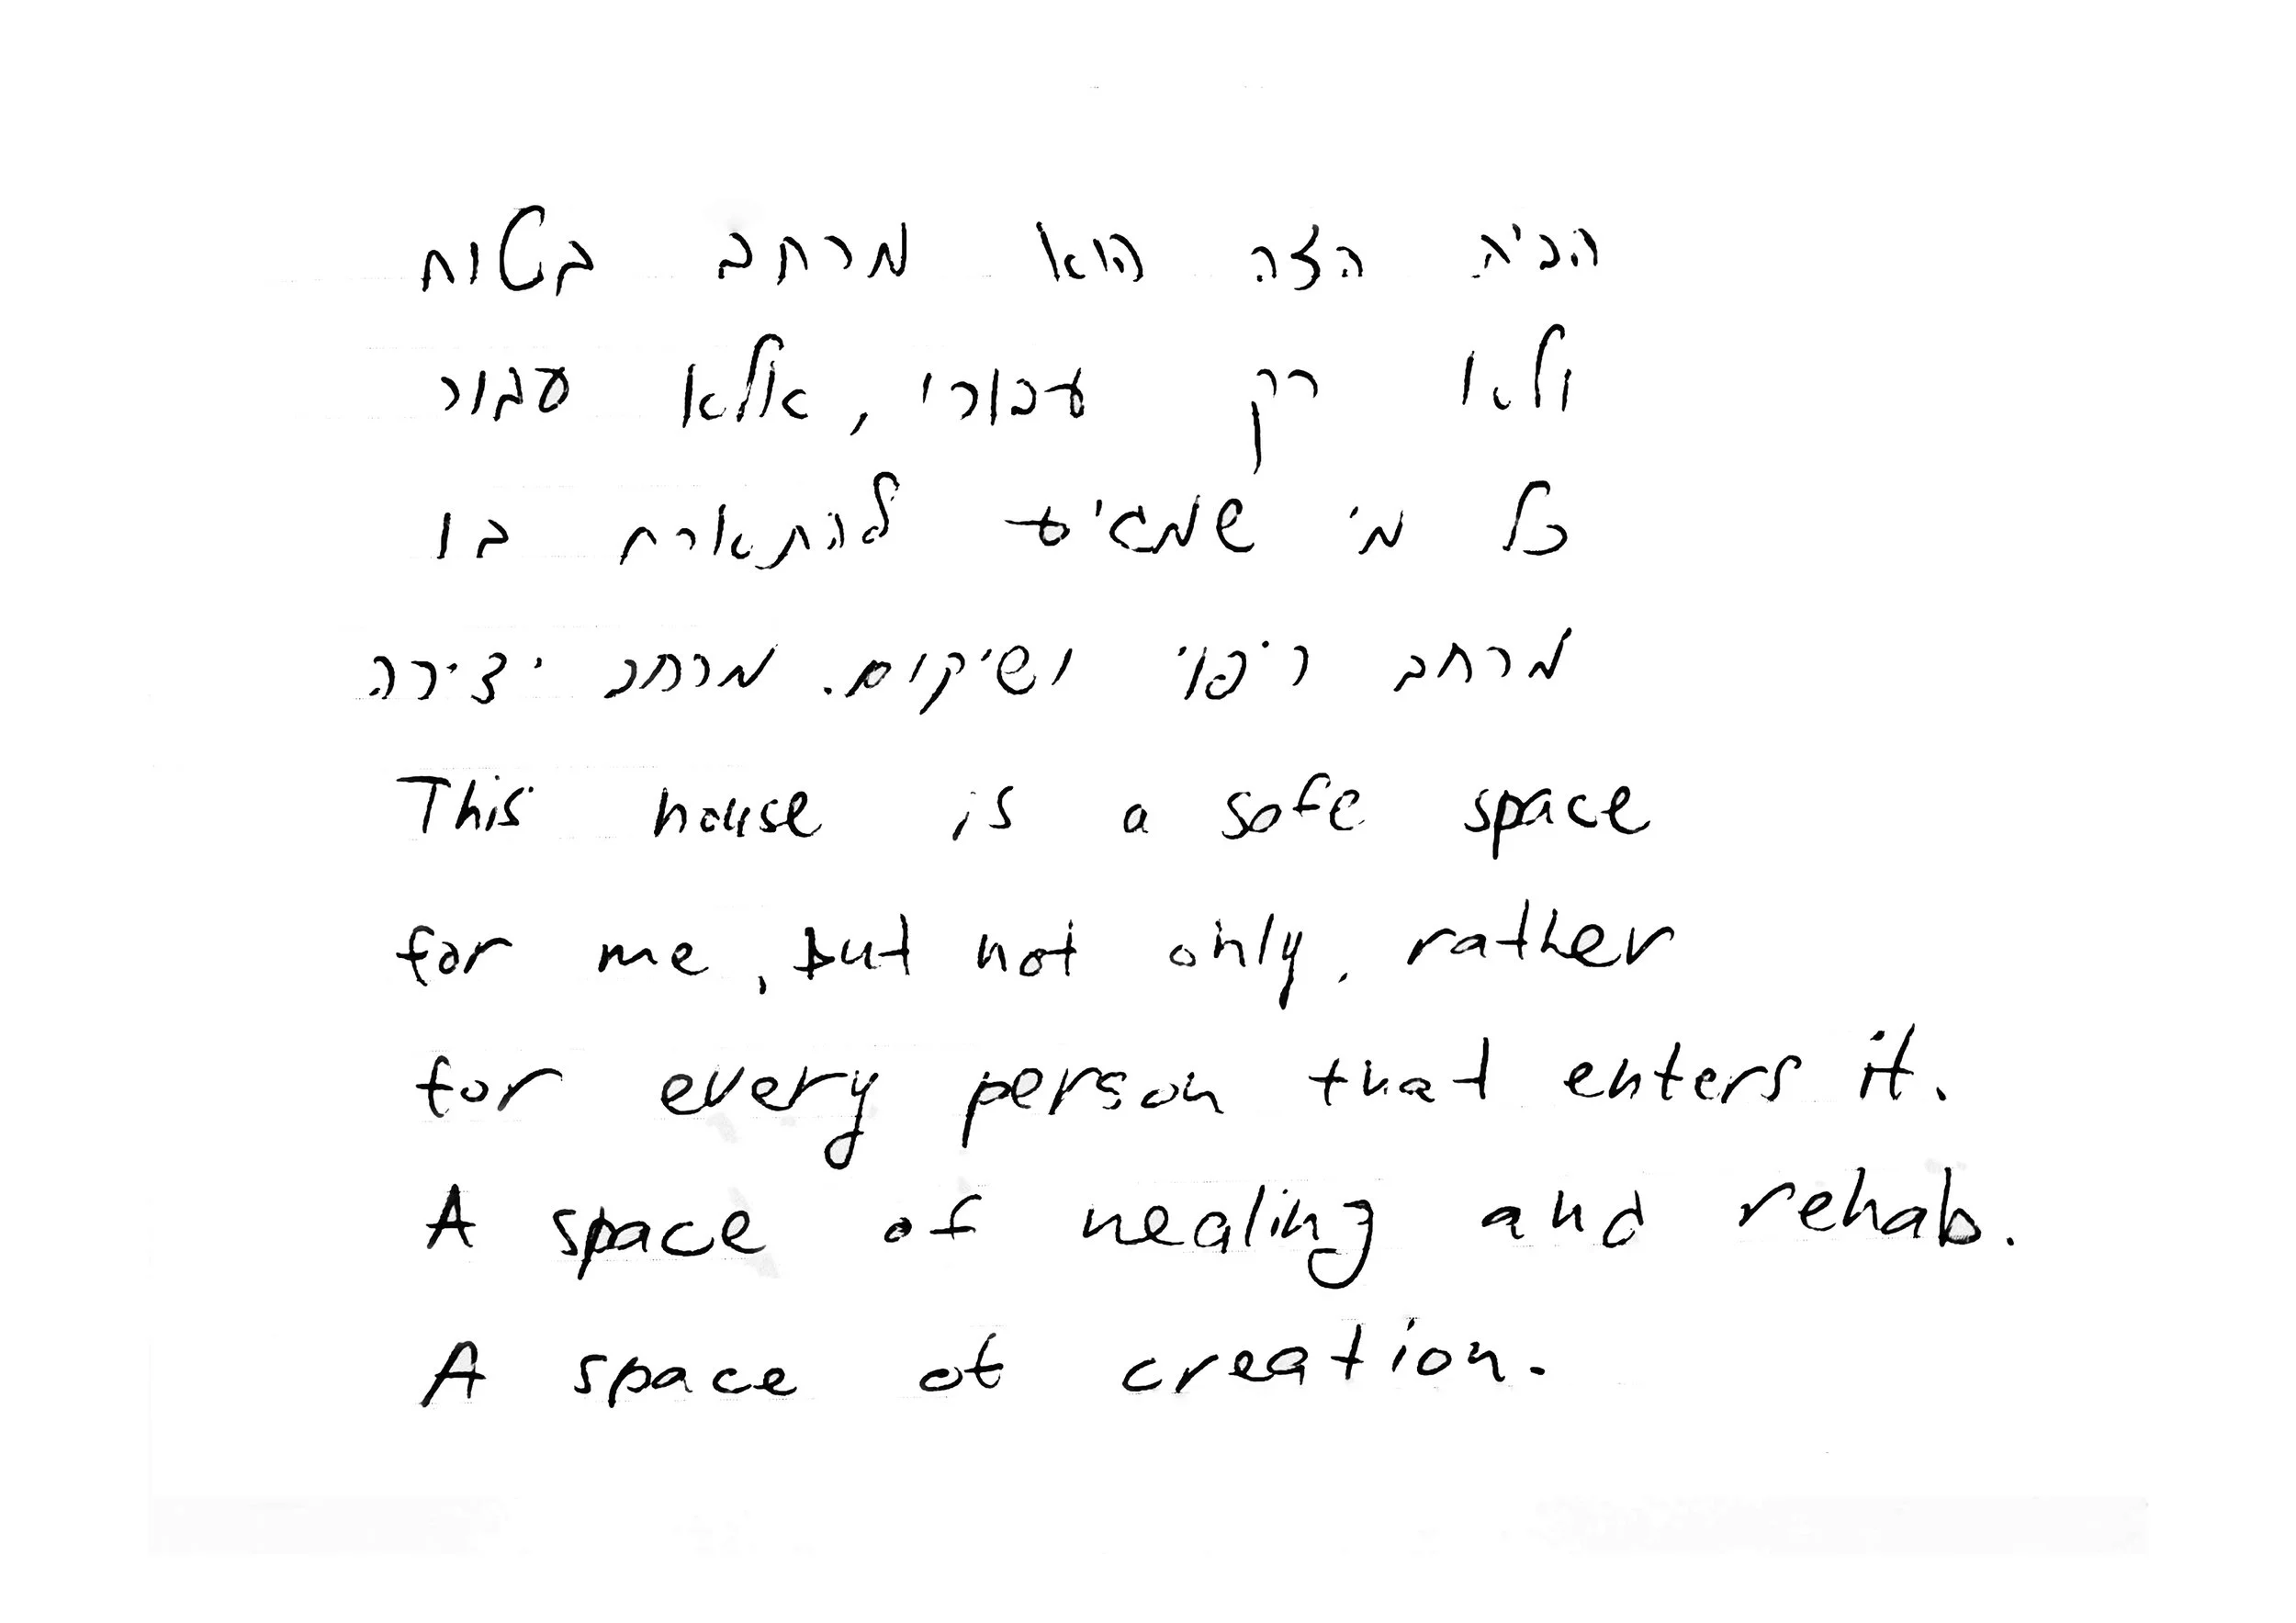 הבית הזה הוא מרחב בטוח
ולא רק עבורי, אלא עבור
כל מי שמגיע להתארח בו
מרחב ריפוי ושיקום. מרחב יצירה
This house is a safe space
for me, but not only, rather
for every person that enters it.
A space of healing and rehab.
A space of creation.